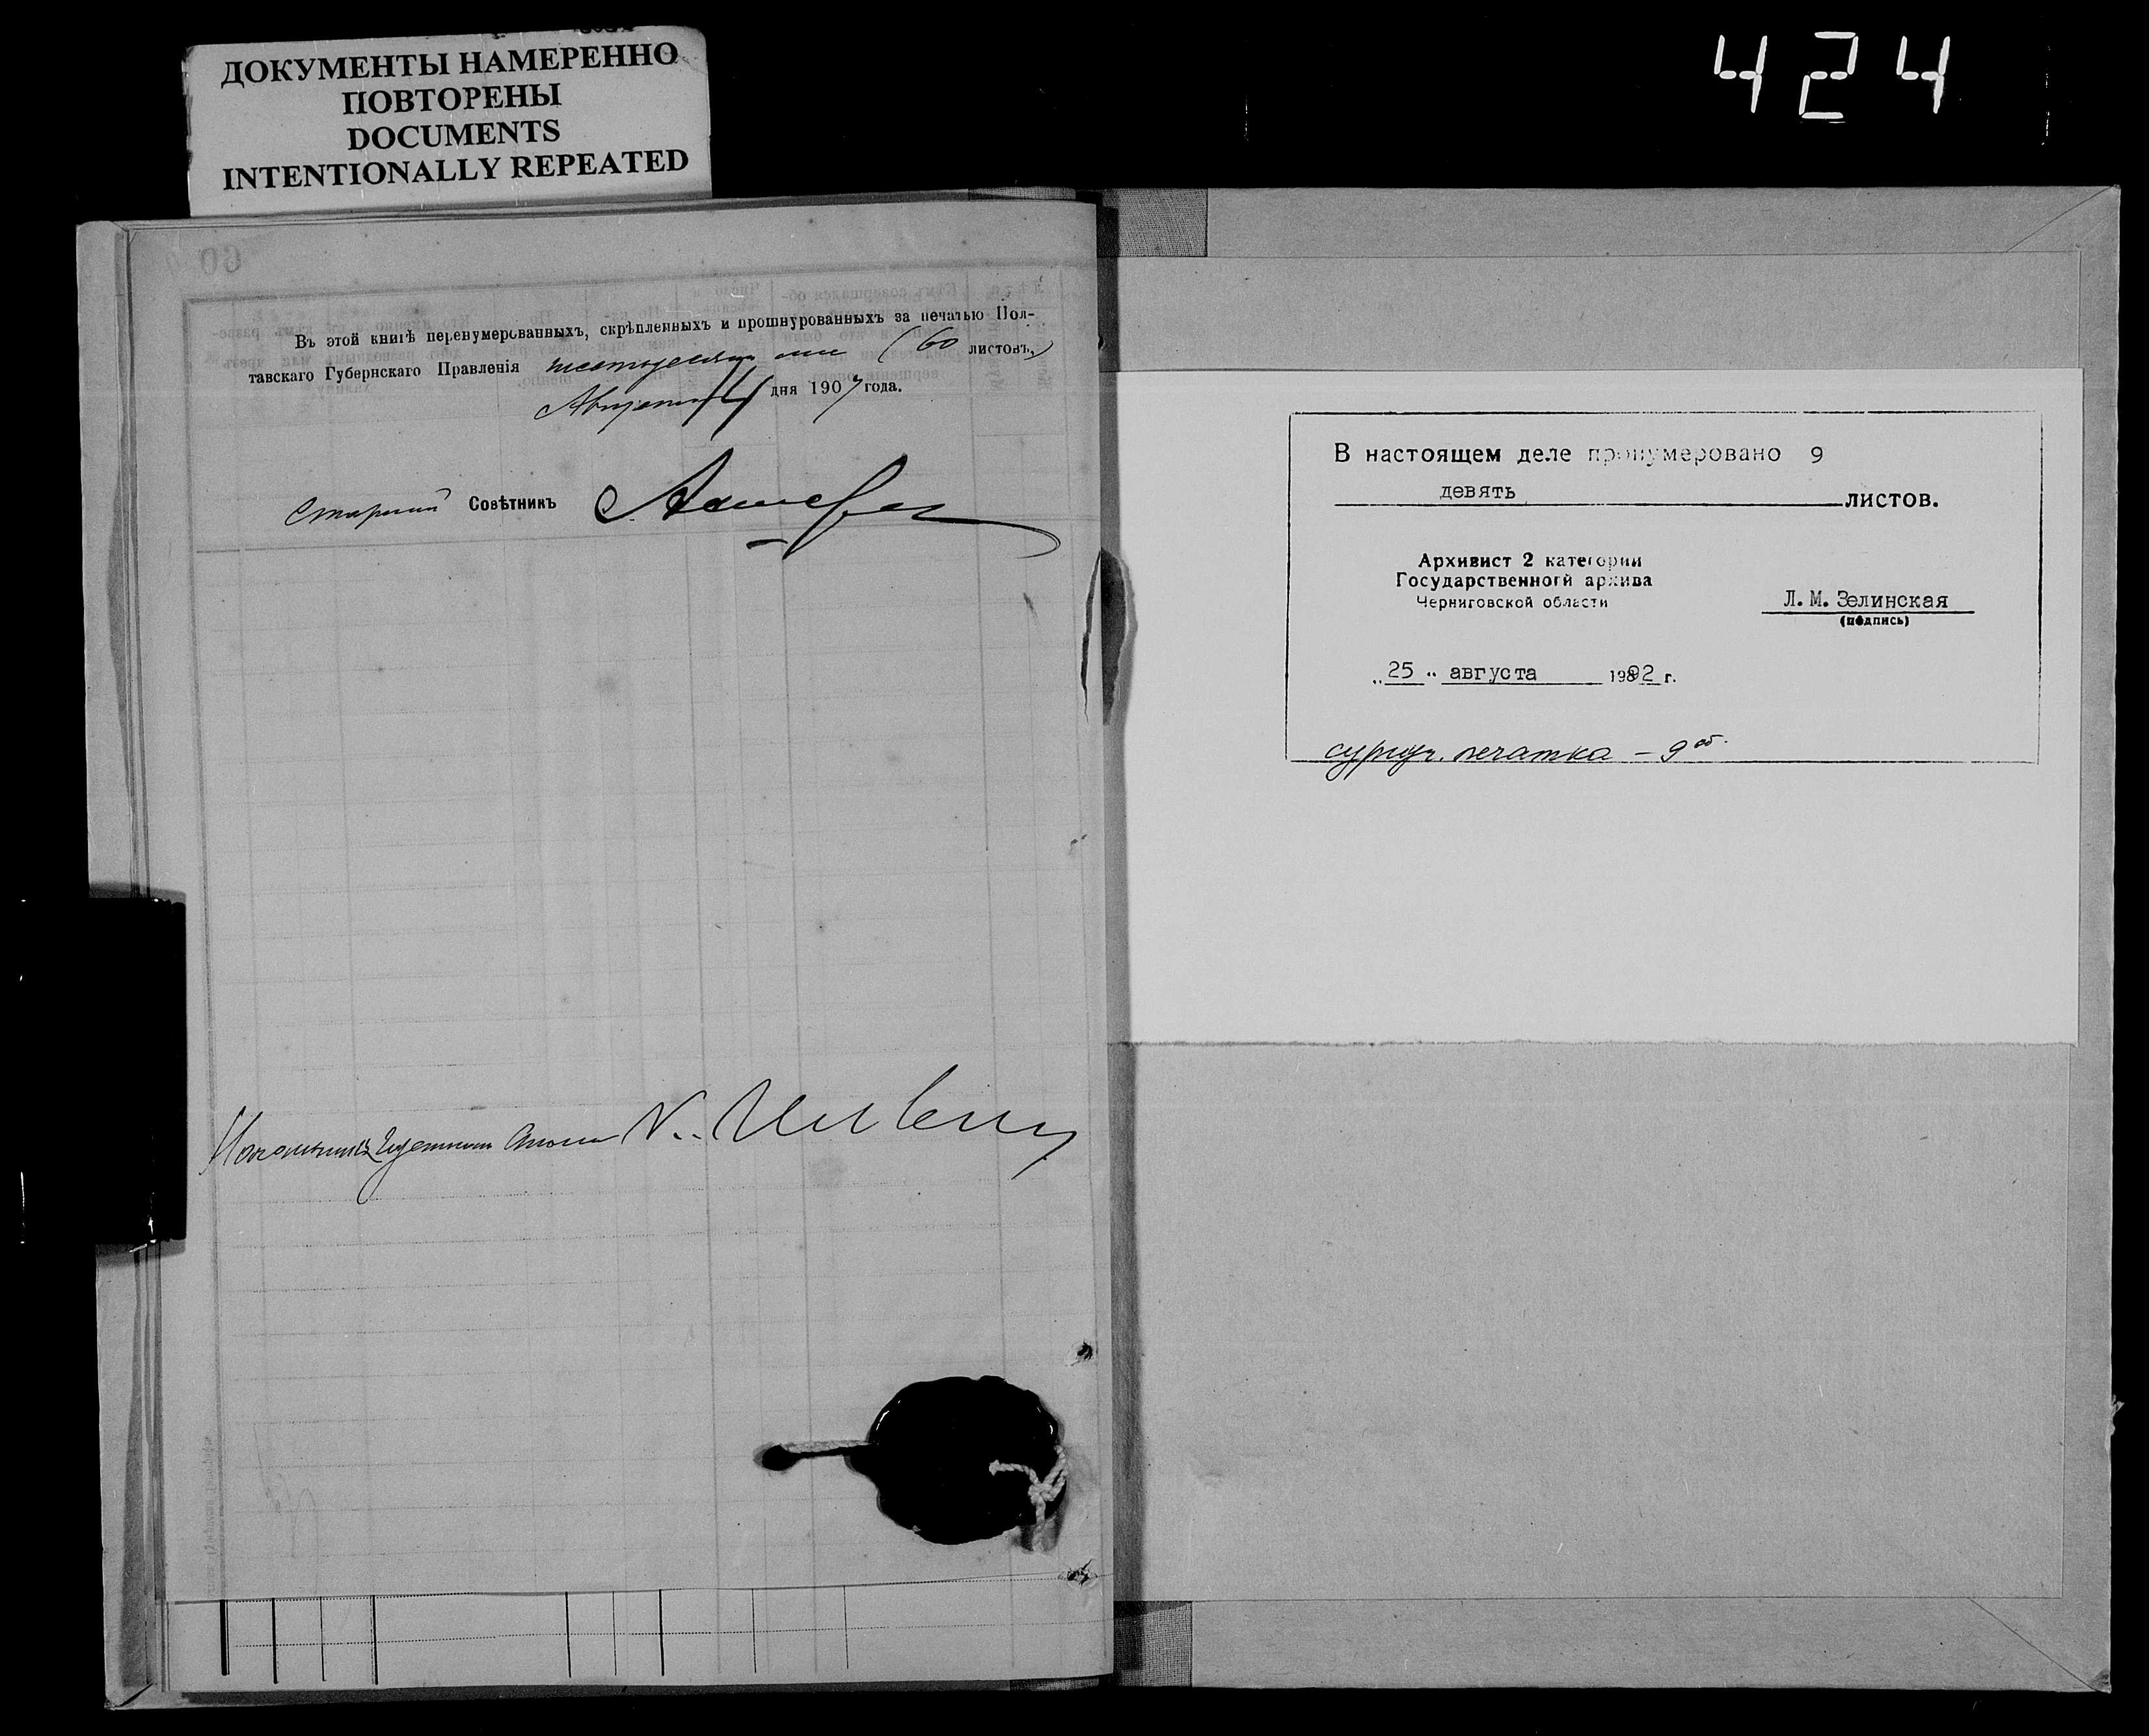 ДОКУМЕНТЫ НАМЕРЕННО
ПОВТОРЕНЫ
DOCUMENTS
INTENTIONALLY REPEATED
424
Въ этой книгѣ перенумерованныхъ, скрѣпленныхъ и прошнурованныхъ за печатью Пол-
тавскаго Губернскаго Правленія шестьдесятъ (60 листовъ,)
Августа 14 дня 1907 года.
Старшій Совѣтникъ
В настоящем деле пронумеровано 9
девять листов.
Архивист 2 категории
Государственногй архива
Черниговской области
Л. М. Зелинская
(подпись)
„25" августа 1992 г.
сургуч. печатка – 9 об.